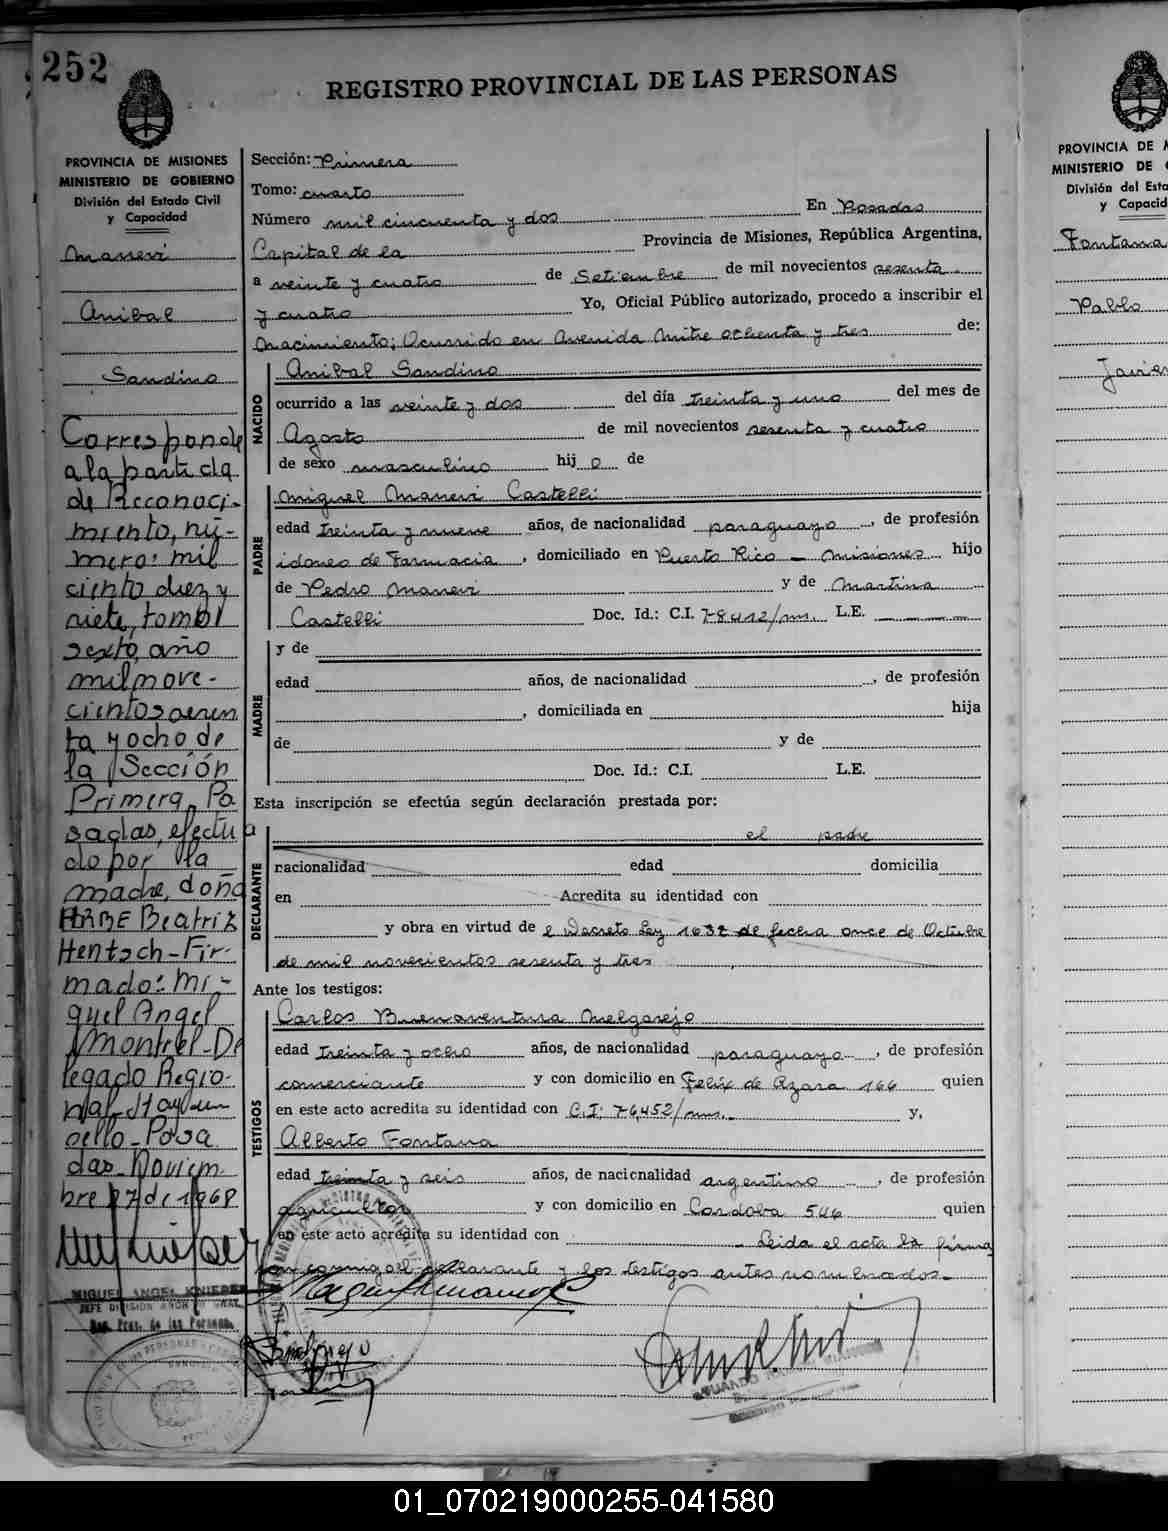 252
REGISTRO PROVINCIAL DE LAS PERSONAS
PROVINCIA DE MISIONES
MINISTERIO DE GOBIERNO
División del Estado Civil
y Capacidad
Manevi
Anibal
Sandino
Corresponde
a la partida
de Reconoci-
miento, nú-
mero: mil
ciento diez y
siete, tomo
sexto, año
mil nove-
cientos sesen
ta y ocho de
la Sección
Primera, Po
sadas, efectua
do por la
madre, doña
Beatriz
Hentsch - Fir-
mado: Mi-
guel Angel
Montiel - De
legado Regio-
nal - Hay un
sello - Posa
das - Noviem-
bre 27 de 1968
MIGUEL ANGEL
JEFE DIVISION
Reg. Prov. de las Personas
Sección: Primera
Tomo: cuarto
Número mil cincuenta y dos En Posadas
Capital de la Provincia de Misiones, República Argentina,
a veinte y cuatro de Setiembre de mil novecientos sesenta
y cuatro Yo, Oficial Público autorizado, procedo a inscribir el
Nacimiento; Ocurrido en Avenida Mitre ochenta y tres de:
NACIDO
Anibal Sandino
ocurrido a las veinte y dos del día treinta y uno del mes de
Agosto de mil novecientos sesenta y cuatro
de sexo masculino hij o de
PADRE
Miguel Manevi Castelli
edad treinta y nueve años, de nacionalidad paraguayo, de profesión
idoneo de Farmacia, domiciliado en Puerto Rico - Misiones hijo
de Pedro Manevi y de Martina
Castelli Doc. Id.: C.I. 78412/mns. L.E.
MADRE
y de
edad años, de nacionalidad , de profesión
, domiciliada en hija
de y de
Doc. Id.: C.I. L.E.
Esta inscripción se efectúa según declaración prestada por:
DECLARANTE
el padre
nacionalidad edad domicilia
en Acredita su identidad con
y obra en virtud de el Decreto Ley 1632 de fecha once de Octubre
de mil novecientos sesenta y tres
Ante los testigos:
TESTIGOS
Carlos Buenaventura Melgarejo
edad treinta y ocho años, de nacionalidad paraguayo, de profesión
comerciante y con domicilio en Felix de Azara 166 quien
en este acto acredita su identidad con C.I: 76,452/mns. y,
Alberto Fontana
edad treinta y seis años, de nacionalidad argentino, de profesión
agricultor y con domicilio en Cordoba 546 quien
en este acto acredita su identidad con - Leida el acta la firma
con conmigo el declarante y los testigos antes nombrados.-
PROVINCIA DE
MINISTERIO DE
División del Esta
y Capacid
Fontana
Pablo
Javier
01_070219000255-041580